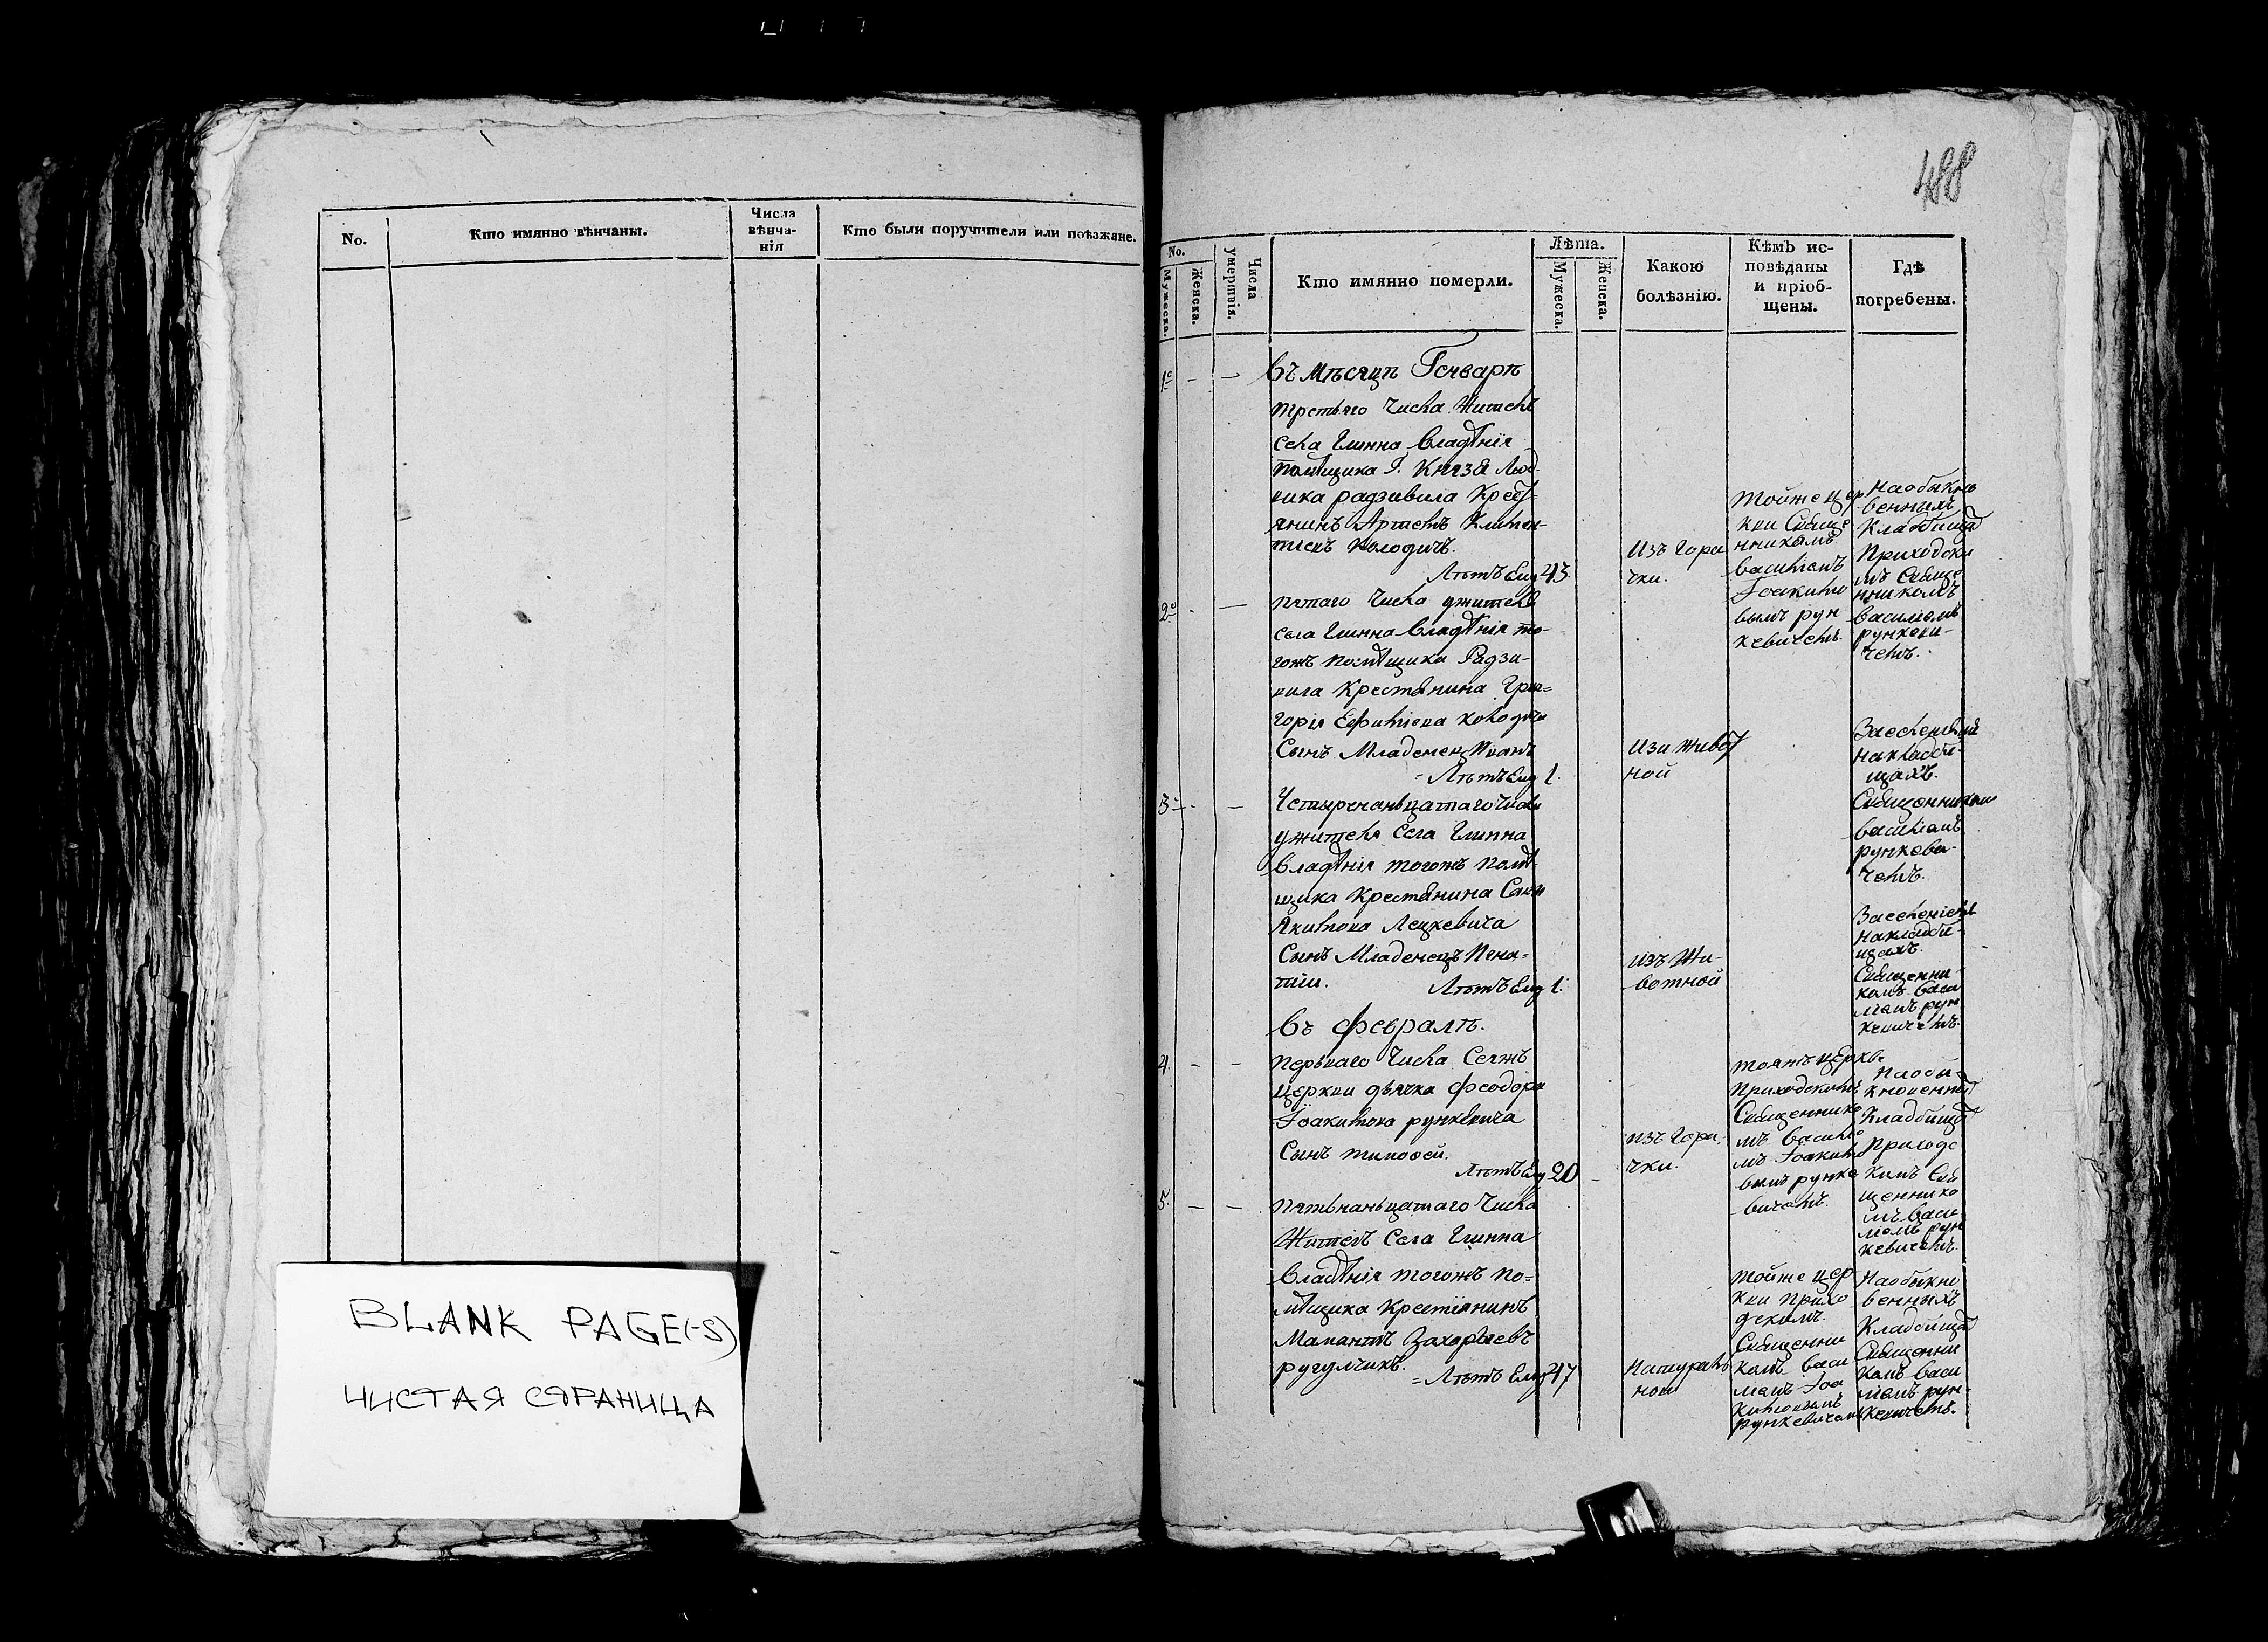 No.
Кто имянно вѣнчаны.
Числа
вѣнча-
нія
Кто были поручители или поѣзжане.
BLANK PAGE(-S)
ЧИСТАЯ СТРАНИЦА
488
No.
Мужеска.
Женска.
Числа
умертвія.
Кто имянно померли.
Лѣта.
Мужеска.
Женска.
Какою
болѣзнію.
Кѣмъ ис-
повѣданы
и пріоб-
щены.
Гдѣ
погребены.
1е
Въ Мѣсяцѣ Генварѣ
третьяго Числа Житель
села Глинна Владѣнія
помѣщика Г. Князя Люд-
вика радзивила Крест-
янинъ Артемъ
Колодичъ.
Лѣтъ Ему 43.
Изъ Горя
чки.
тойже цер
кви Свяще
нникомъ
василіемъ
Іоакимо
вымъ рун
кевичемъ.
На обыкно
венныхъ
Кладбищахъ
Приходски
мъ Свяще
нникомъ
василіемъ
рункеви-
чемъ.
2е
пятаго Числа ужителя
села Глинна Владѣнія то-
гожъ помѣщика Радзи-
вила Крестьянина Гри-
горія Ефимьева Колодича
Сынъ Младенецъ Иванъ
Лѣтъ Ему 1.
Изъ живот
ной
На кладби-
щахъ.
Священникомъ
василіемъ
рункеви-
чемъ.
3
Четыренадцатаго Числа
ужителя села Глинна
Владѣнія тогожъ помѣ-
щика Крестьянина
Якимова Лецкевича
Сынъ Младенецъ
Лѣтъ Ему 1.
изъ Жи-
вотной
На кладби-
щахъ.
Священни-
комъ васи
ліемъ рун
кевичемъ.
Въ февралѣ.
4
перьваго Числа Сеяжъ
церкви дьячка Феодора
Іоакимова рункевича
Сынъ тимофей.
Лѣтъ Ему 20
изъ Горя-
чки.
тояжъ церкви
Приходскимъ
Священнико
мъ василіе
мъ Іоакимо
вымъ рунке
вичемъ.
На обы-
кновенныхъ
Кладбищахъ
Приходс
кимъ Свя
щеннико
мъ васи
ліемъ рун
кевичемъ.
5.
пятьнадьцатаго Числа
Житель Села Глинна
Владѣнія тогожъ по-
мѣщика Крестіянинъ
Захарьевъ
Лѣтъ Ему 47
Натураль
ной
тойже цер
кви прихо
дскимъ
Священни
комъ васи
ліемъ Іоа
кимовымъ
рункевичемъ
На обыкно
венныхъ
Кладбищахъ
Священни
комъ васи
ліемъ рун-
кевичемъ.